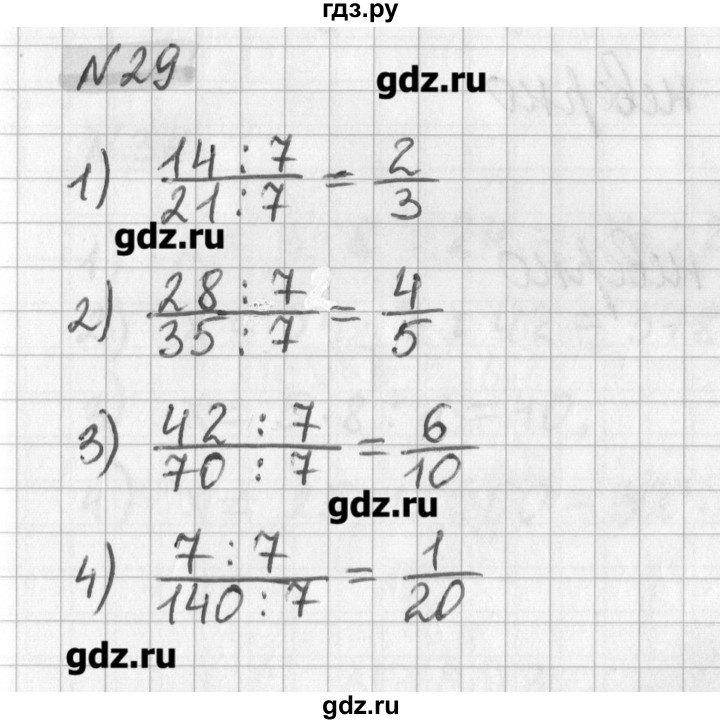 гдз.ру
№29
gdz.ru
1) 14 : 7 / 21 : 7 = 2 / 3
gdz.ru
2) 28 : 7 / 35 : 7 = 4 / 5
3) 42 : 7 / 70 : 7 = 6 / 10
gdz.ru
4) 7 : 7 / 140 : 7 = 1 / 20
gdz.ru
gdz.ru